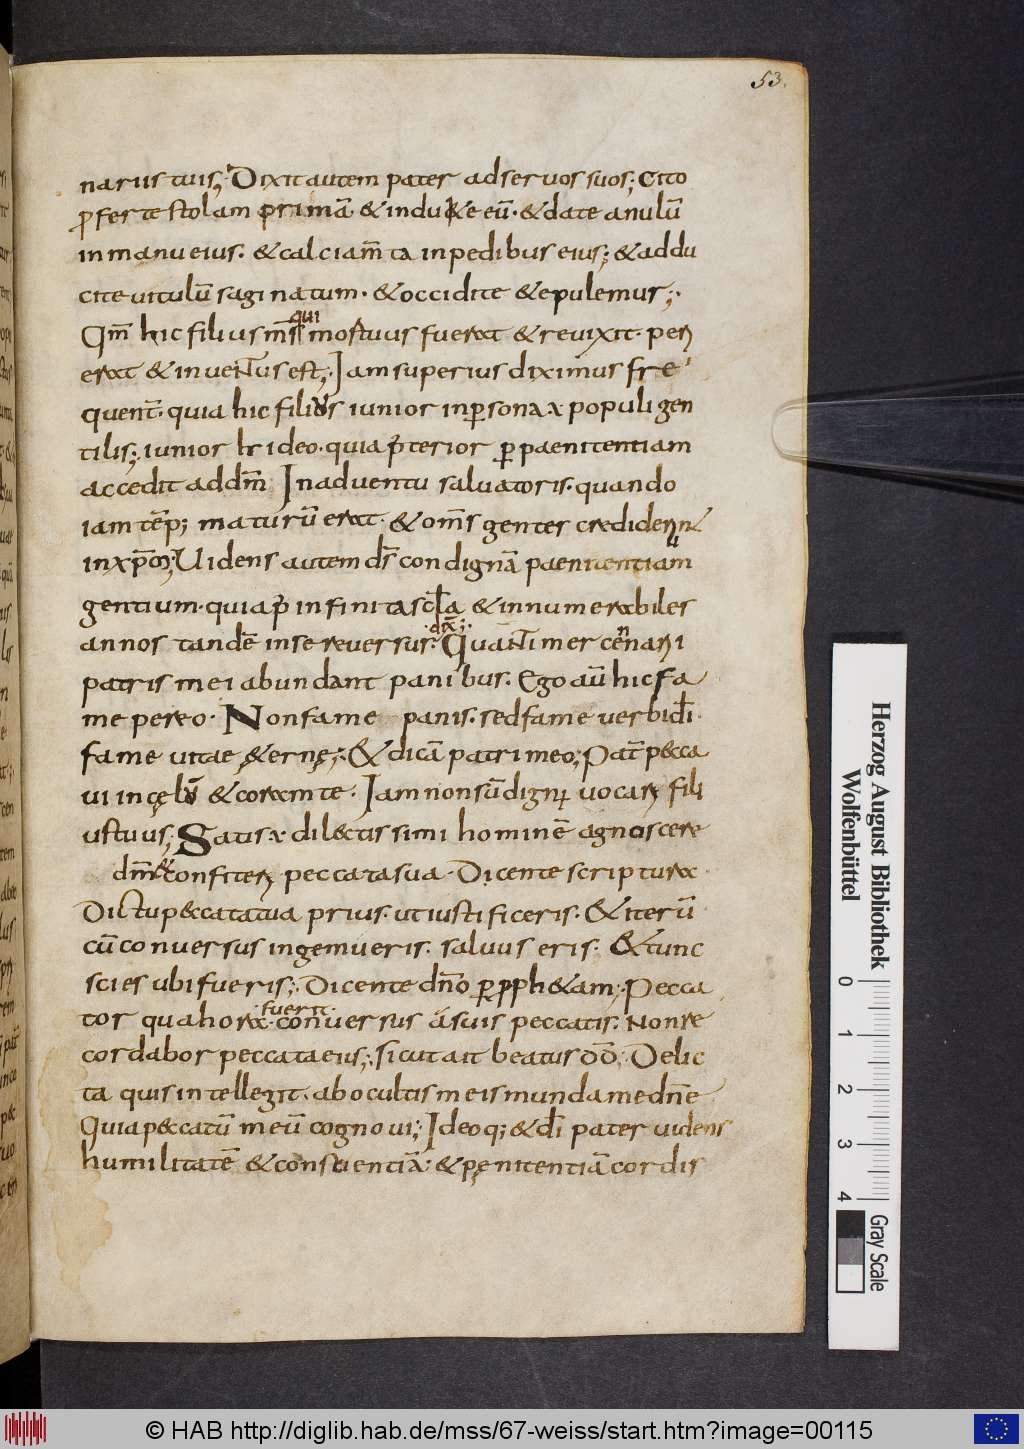 53.
nariis tuis; Dixit autem pater ad seruos suos; Cito
ꝓferte stolam primā & induite eū· & date anulū
in manu eius· & calciam̄ta in pedibus eius; & addu
cite uitulū saginatum· & occidite & epulemur;·
qui
Qm̄ hic filius ms̄ mortuus fuerat & reuixit· peri
erat & inuentus est;· Iam superius diximus fre
quent̄· quia hic filius iunior in ꝑsona ÷ populi gen
tilis; iunior hr̄ ideo· quia p̄terior ꝑ paenitentiam
accedit ad dm̄ In aduentu saluatoris· quando
iam tēp; maturū erat· & om̄s gentes crediderin̄
in xp̄o; Uidens autem ds̄ condignā paenitentiam
gentium· quia p̄ infinita scl̄a & innumerabiles
dix̄;·
annos tandē in se reuersus· Quanti mercennarii
patris mei abundant panibus· Ego aū hic fa
me pereo· Non fame panis· sed fame uerbi dī·
fame uitae &ernę;· & dicā patri meo; Pat̄ pecca
ui in cęlū & coram te· Iam non sū dignus uocari fili
us tuus; Satis ÷ dilectissimi hominē agnoscere
dm̄ & confiteri peccata sua· Dicente scriptura·
Dic tu peccata tua prius· ut iustificeris· & iterū
cū conuersus ingemueris· saluus eris· & tunc
scies ubi fueris;· Dicente dn̄o ꝑ pph&am; Pecca
fuerit
tor qua hora· conuersus a suis peccatis· Non re
cordabor peccata eius;· sicut ait beatus dd̄· Delic
ta quis intellegit· ab ocultis meis munda me dn̄e
Quia peccatū meū cognoui;· Ideoq; & dī pater uidens
humilitatē & conscientiā· & pęnitentiā cordis
Herzog August Bibliothek
Wolfenbüttel
0 1 2 3 4
Gray Scale
© HAB http://diglib.hab.de/mss/67-weiss/start.htm?image=00115